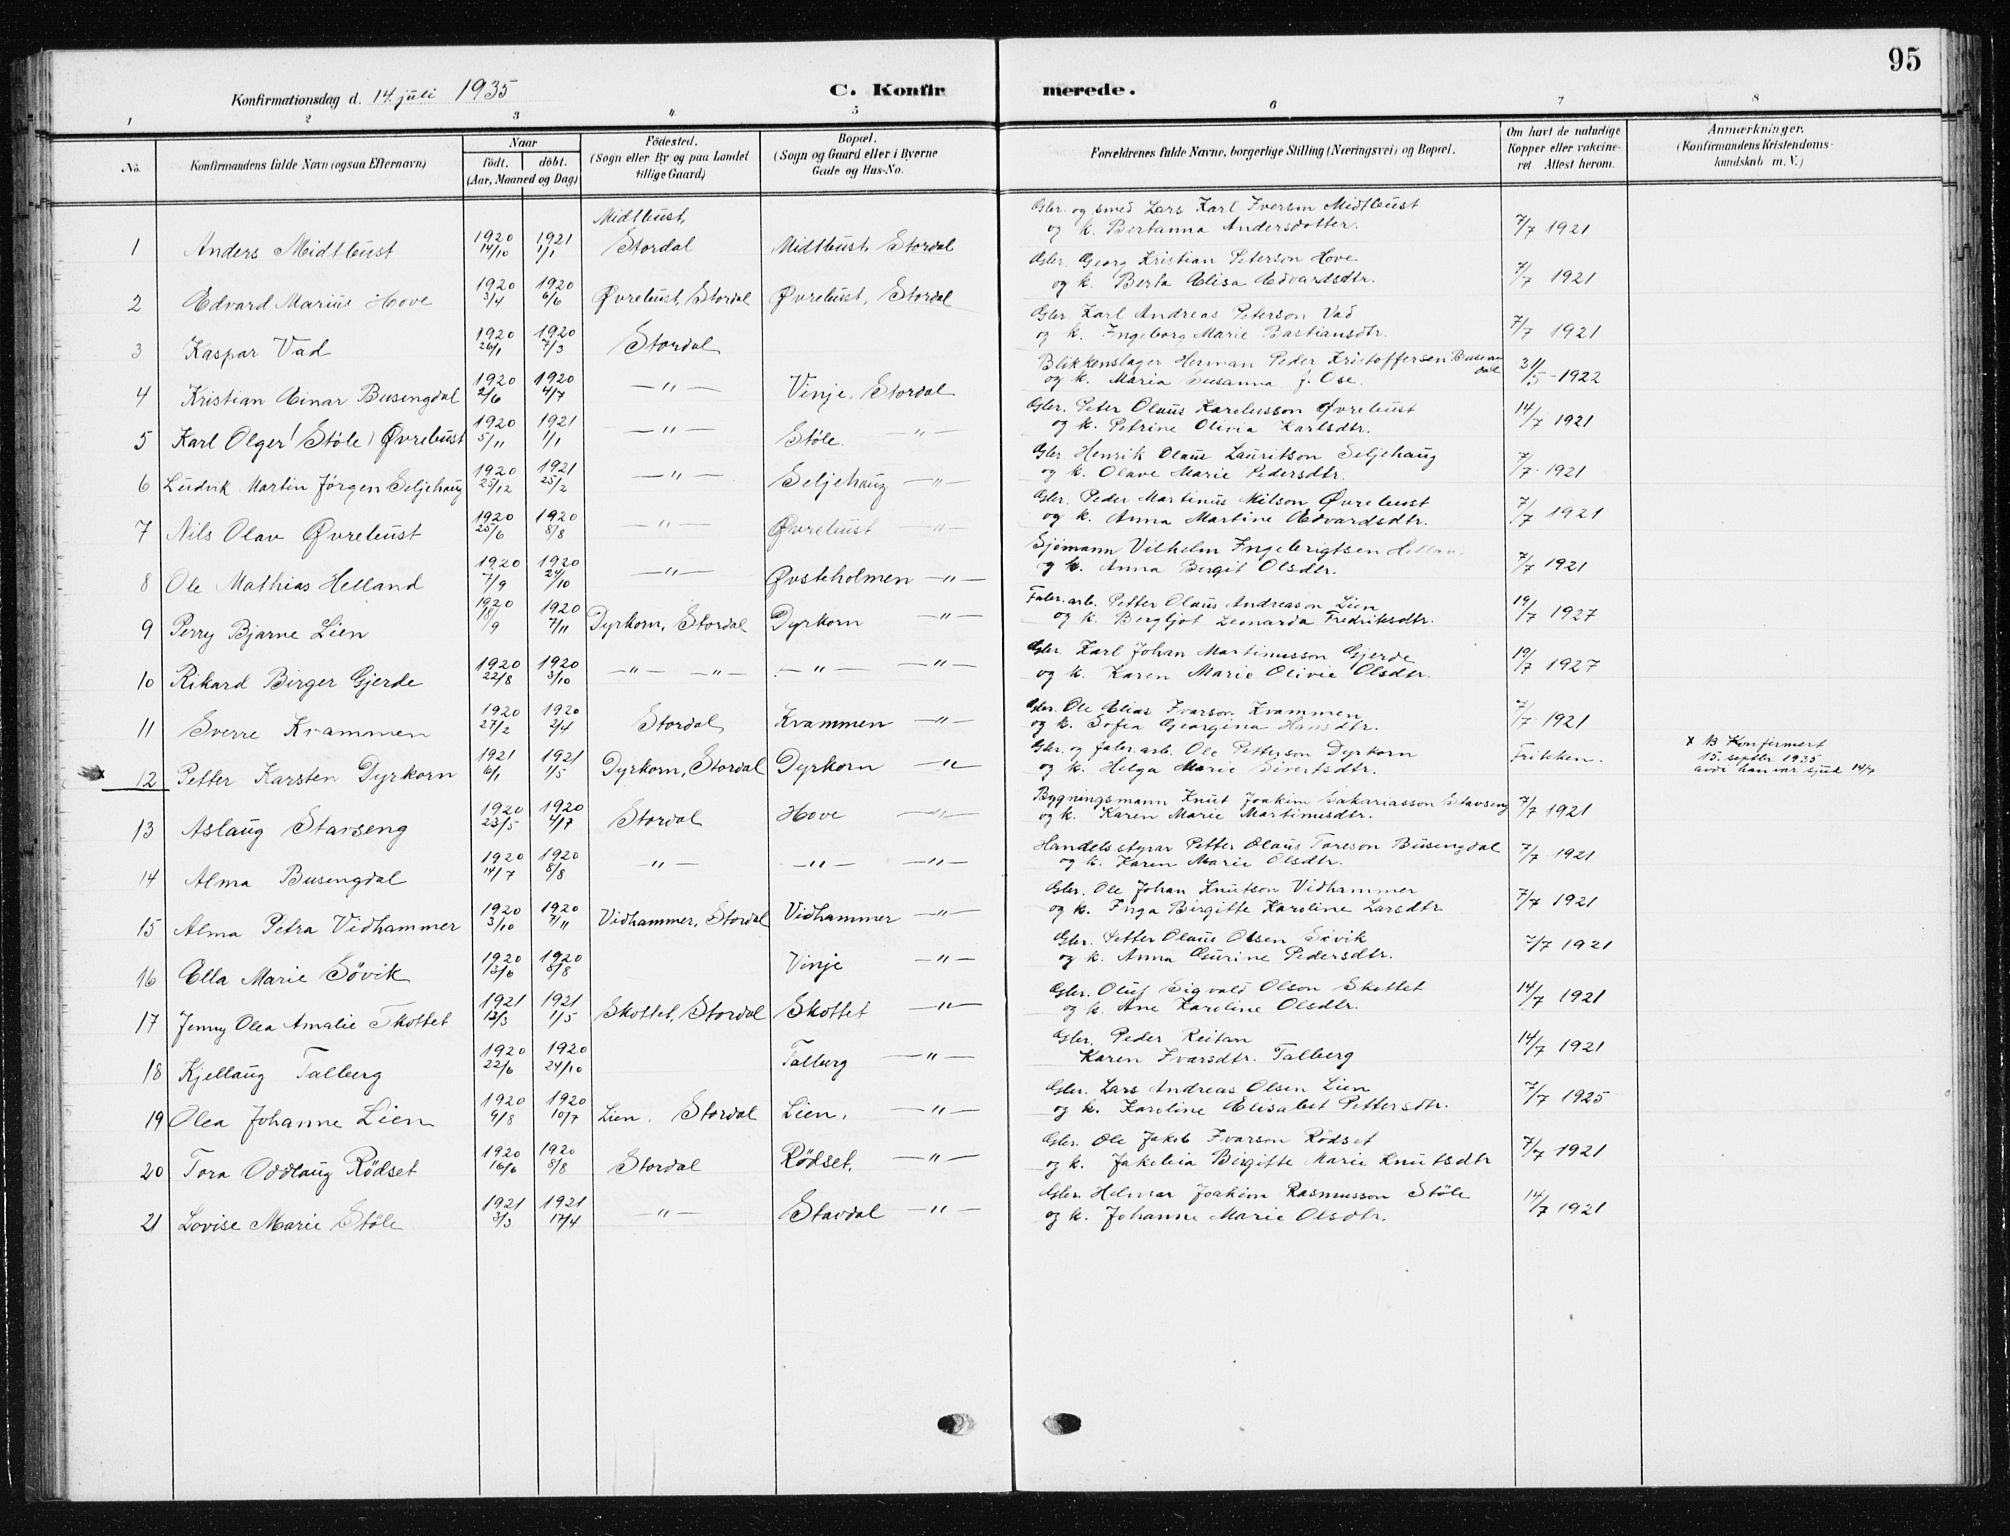 95
Konfirmationsdag d. 14. juli 1935
C. Konfir merede.
1 2 3 4 5 6 7 8
No. Konfirmandens fulde Navn (ogsaa Efternavn) Naar født. døbt. (Aar, Maaned og Dag) Fødested. (Sogn eller By og paa Landet tillige Gaard) Bopæl. (Sogn og Gaard eller i Byerne Gade og Hus-No. Forældrenes fulde Navne, borgerlige Stilling (Næringsvei) og Bopæl. Om havt de naturlige Kopper eller vakcineret Attest herom. Anmærkninger. (Konfirmandens Kristendomskundskab m. V.)
1 Anders Midtbust 1920 14/10 1921 1/1 Midtbust, Stordal Midtbust Stordal Gbr. og smed Lars Karl Iverson Midtbust og k. Bertanna Andersdotter. 7/7 1921
2 Edvard Marius Hove 1920 3/4 1920 6/6 Øvrebust, Stordal Øvrebust, Stordal Gbr. Georg Kristian Peterson Hove og k. Berta Elisa Edvardsdtr. 7/7 1921
3 Kaspar Vad 1920 26/1 1920 7/3 Stordal Gbr. Karl Andreas Peterson Vad og k. Ingeborg Marie Bastiansdtr. 7/7 1921
4 Kristian Einar Busengdal 1920 2/6 1920 4/7 —"— Vinje, Stordal Blikkenslager Herman Peder Kristoffersen og k. Maria Susanna f. Ose. 31/5-1922
5 Karl Olger (Støle) Øvrebust 1920 5/11 1921 1/1 —"— Støle. —"— Gbr. Peter Olaus Karolusson Øvrebust og k. Petrine Olivia Karlsdtr. 14/7 1921
6 Ludvik Martin Jørgen Seljehaug 1920 25/12 1921 25/2 —"— Seljehaug —"— Gbr. Henrik Olaus Lauritson Seljehaug og k. Olave Marie Pedersdtr. 7/7-1921
7 Nils Olav Øvrebust 1920 25/6 1920 8/8 —"— Øvrebust —"— Gbr. Peder Martinus Nilson Øvrebust og k. Anna Martine Edvardsdtr. 7/7 1921
8 Ole Mathias Helland 1920 7/9 1920 24/10 —"— Øvsteholmen —"— Sjømann Vilhelm Ingebrigtsen og k. Anna Bergit Olsdtr. 7/7 1921
9 Perry Bjarne Lien 1920 18/9 1920 7/11 Dyrkorn, Stordal Dyrkorn —"— Fabr.arb. Petter Olaus Andreason Lien og k. Bergljot Leonarda Fredriksdtr. 19/7 1927
10 Rikard Birger Gjerde 1920 22/8 1920 3/10 —"— —"— —"— —"— Gbr. Karl Johan Martinusson Gjerde og k. Karen Marie Olivie Olsdtr. 19/7 1927
11 Sverre Krammen 1920 27/2 1920 2/4 Stordal Krammen —"— Gbr. Ole Elias Ivarson Krammen og k. Sofia Georgina Hansdtr. 7/7-1921
x 12 Petter Karsten Dyrkorn 1921 6/1 1921 1/5 Dyrkorn, Stordal Dyrkorn —"— Gbr. og fabr. arb. Ole Petterson Dyrkorn og k. Helga Marie Sivertsdtr. Fritken. x Konfirmert 15. septbr. 1935 avdi han var sjuk 14/7
13 Aslaug Stavseng 1920 23/5 1920 4/7 Stordal Hove —"— Bygningsmann Knut Joakim Sakariasson Stavseng og k. Karen Marie Martinusdtr. 7/7 1921
14 Alma Busengdal 1920 14/7 1920 8/8 —"— —"— —"— Handelsstyrar Petter Olaus Toreson Busengdal og k. Karen Marie Olsdtr. 7/7 1921
15 Alma Petra Vidhammer 1920 3/10 1920 7/11 Vidhammer, Stordal Vidhammer —"— Gbr. Ole Johan Knutson Vidhammer og k. Inga Birgitte Karoline Larsdtr 7/7 1921
16 Ella Marie Søvik 1920 13/6 1920 8/8 Vinje —"— Gbr. Petter Olaus Olsen Søvik og k. Anna Gurine Pedersdtr. 7/7 1921
17 Jenny Olea Amalie Skottet 1921 12/3 1921 1/5 Skottet, Stordal Skottet —"— Gbr. Oluf Sigvald Olson Skottet og k. Ane Karoline Olsdtr. 14/7 1921
18 Kjellaug Talberg 1920 22/6 1920 24/10 Talberg —"— Gbr. Peder Reitan Karen Ivarsdtr. Talberg 14/7 1921
19 Olea Johanne Lien 1920 9/8 1920 10/7 Lien, Stordal Lien, —"— Gbr. Lars Andreas Olsen Lien og k. Karoline Elisabet Pettersdtr. 7/7 1925
20 Tora Oddlaug Rødset 1920 16/6 1920 8/8 Stordal Rødset, —"— Gbr. Ole Jakob Ivarson Rødset og k. Jakobia Birgitte Marie Knutsdtr 7/7 1921
21 Lovise Marie Støle 1921 3/3 1921 17/4 —"— Stavdal —"— Gbr. Helmar Joakim Rasmusson Støle og k. Johanne Marie Olsdtr. 14/7 1921